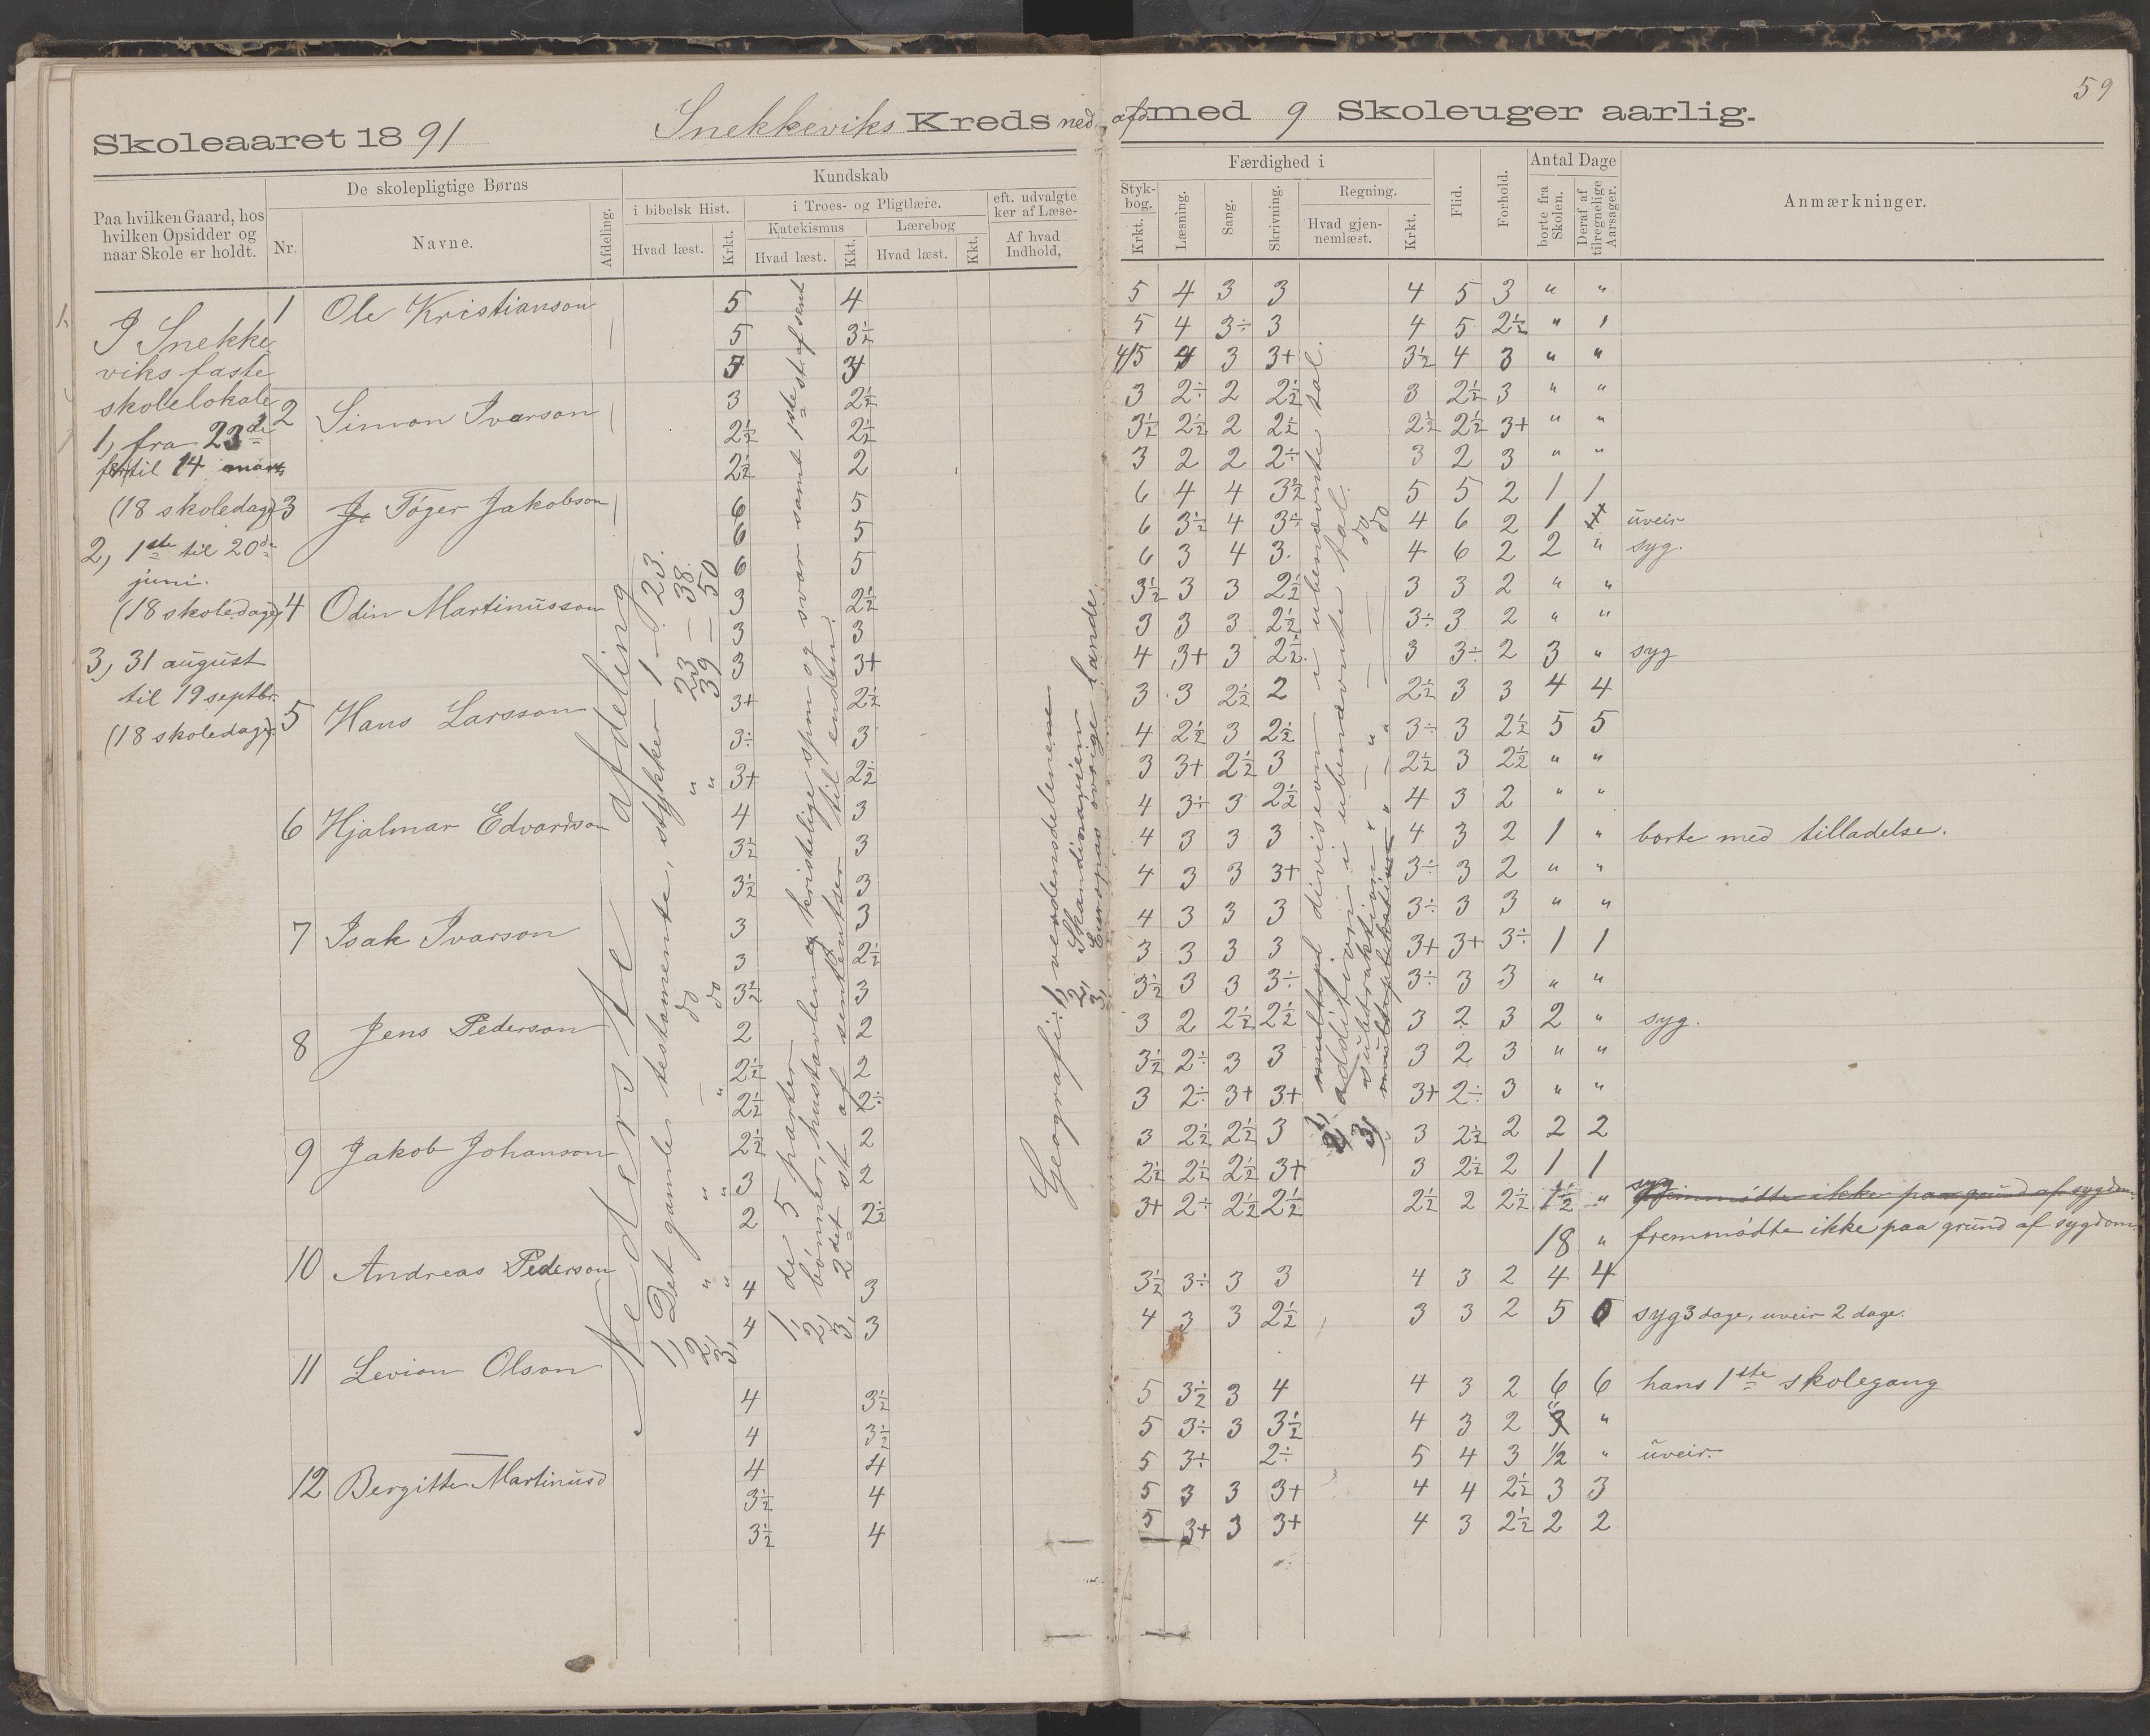 59
Skoleaaret 1891 Snekkeviks Kreds ned. afd. med 9 Skoleuger aarlig.
Paa hvilken Gaard, hos hvilken Opsidder og naar Skole er holdt.
De skolepligtige Børns
Nr.
Navne.
Afdeling.
Kundskab
i bibelsk Hist.
Hvad læst.
Krkt.
i Troes- og Pligtlære.
Katekismus
Hvad læst.
Kkt.
Lærebog
Hvad læst.
Kkt.
eft. udvalgte
ker af Læse-
Af hvad
Indhold,
Færdighed i
Styk-
bog.
Krkt.
Læsning.
Sang.
Skrivning.
Regning.
Hvad gjen-
nemlæst.
Krkt.
Flid.
Forhold.
Antal Dage
borte fra Skolen.
Deraf af tilregnelige Aarsager.
Anmærkninger.
I Snekke
viks faste
skolelokale
1, fra 23de
febr til 14 marts
(18 skoledage)
2, 1ste til 20de
juni.
(18 skoledage)
3, 31 august
til 19 septbr.
(18 skoledage).
Nederste afdeling
1, Det gamle testamente, stykker 1 – 23.
2, " " — do " 23 – 38.
3, " " " do " 39 – 50
1, de 5 parter
2, bønner, hustavlen og kristelige spm og svar samt 1ste st. af sent
3, 2det st af sententser til enden.
Geografi: 1, verdensdelenene
2, Skandinavien
3, Europas øvrige lande.
1, multipl. divisjon i ubenævnte tal.
2, addition i ubenævnte tal.
3, subtraktion " — " — do
multiplikation " — " — do
1 Ole Kristianson
5 4 5 4 3 3 4 5 3 " "
5 3½ 5 4 3÷ 3 4 5 2½ " 1
5 3+ 4/5 4 3 3+ 3½ 4 3 " "
2 Simon Ivarson
3 2½ 3 2÷ 2 2½ 3 2½ 3 " "
2½ 2½ 3½ 2½ 2 2½ 2½ 2½ 3+ " "
2½ 2 3 2 2 2÷ 3 2 3 " "
3 Tøger Jakobson
6 5 6 4 4 3½ 5 5 2 1 1
6 5 6 3½ 4 3÷ 4 6 2 1 uveir
6 5 6 3 4 3. 4 6 2 2 " syg.
4 Odin Martinusson
3 2½ 3½ 3 3 2½ 3 3 2 " "
3 3 3 3 3 2½ 3÷ 3 2 " "
3 3+ 4 3+ 3 2½. 3 3÷ 2 3 " syg
5 Hans Larsson
3+ 2½ 3 3 2½ 2 2½ 3 3 4 4
3÷ 3 4 2½ 3 2½ 3÷ 3 2½ 5 5
3+ 2½ 3 3+ 2½ 3 2½ 3 2½ " "
6 Hjalmar Edvardson
4 3 4 3÷ 3 2½ 4 3 2 " "
3½ 3 4 3 3 3 4 3 2 1 " borte med tilladelse.
3½ 3 4 3 3 3+ 3÷ 3 2 " "
7 Isak Ivarson
3 3 4 3 3 3 3÷ 3 3 " "
3 2½ 3 3 3 3 3+ 3+ 3÷ 1 1
3½ 3 3½ 3 3 3÷ 3÷ 3 3 " "
8 Jens Pederson
2 2 3 2 2½ 2½ 3 2 3 2 " syg.
2½ 2 3½ 2÷ 3 3 3 2 3 " "
2½ 2÷ 3 2÷ 3+ 3+ 3+ 2÷ 3 " "
9 Jakob Johanson
2½ 2 3 2½ 2½ 3 3 2½ 2 2 2
3 2 2½ 2½ 2½ 3+ 3 2½ 2 1 1
2 2½ 3+ 2÷ 2½ 2½ 2½ 2 2½ 1½ " syg fremmødte ikke paa grund af sygdom.
10 Andreas Pederson
18 " fremmødte ikke paa grund af sygdom
4 3 3½ 3÷ 3 3 4 3 2 4 4
4 3 4 3 3 2½ 3 3 2 5 syg 3 dage, uveir 2 dage.
11 Levion Olson
4 3½ 5 3½ 3 4 4 3 2 6 6 hans 1ste skolegang
4 3½ 5 3÷ 3 3½ 4 3 2 3 "
4 4 5 3+ 2÷ 5 4 3 ½ " uveir.
12 Bergitte Martinusd
3½ 4 5 3 3 3+ 4 4 2½ 3 3
3½ 4 5 3+ 3 3+ 4 3 2½ 2 2